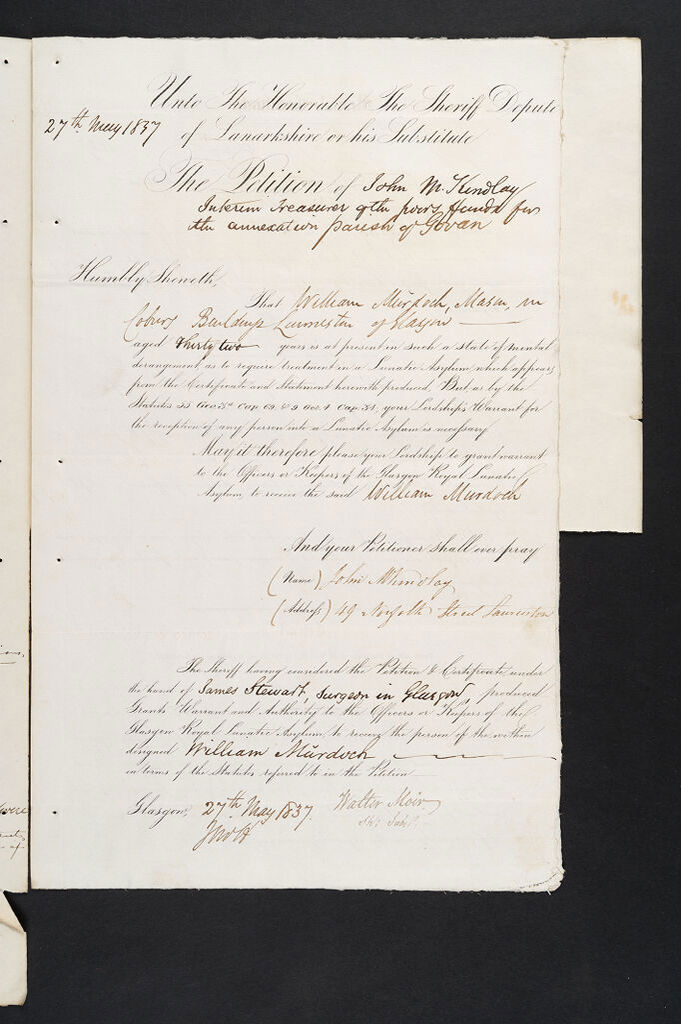 Unto The Honorable The Sheriff Depute
27th May 1837
of Lanarkshire or his Substitute
The Petition of John McKindlay
Interim Treasurer of the poors Funds for
the annexation parish of Govan
Humbly Sheweth,
That William Murdoch, Mason, in
Buildings Laurieston of Glasgow
aged thirty two years is at present in such a state of mental
derangement, as to require treatment in a Lunatic Asylum which appears
from the Certificate and Statement herewith produced, But as by the
Statutes 55 Geo. 3d Cap. 69. & 9 Geo. 4 Cap. 34, your Lordship's Warrant for
the reception of any person into a Lunatic Asylum is necessary.
May it therefore please your Lordship to grant warrant
to the Officers or Keepers of the Glasgow Royal Lunatic
Asylum, to receive the said William Murdoch
And your Petitioner shall ever pray
(Name) John McKindlay
(Address) 49 Norfolk Street Laurieston
The Sheriff having considered the Petition & Certificate under
the hand of James Stewart, Surgeon in Glasgow, produced
Grants Warrant and Authority to the Officers or Keepers of the
Glasgow Royal Lunatic Asylum, to receive the person of the within
designed William Murdoch
in terms of the Statutes referred to in the Petition
Glasgow, 27th May 1837. Walter Moir
Sh: Sub:
were
of